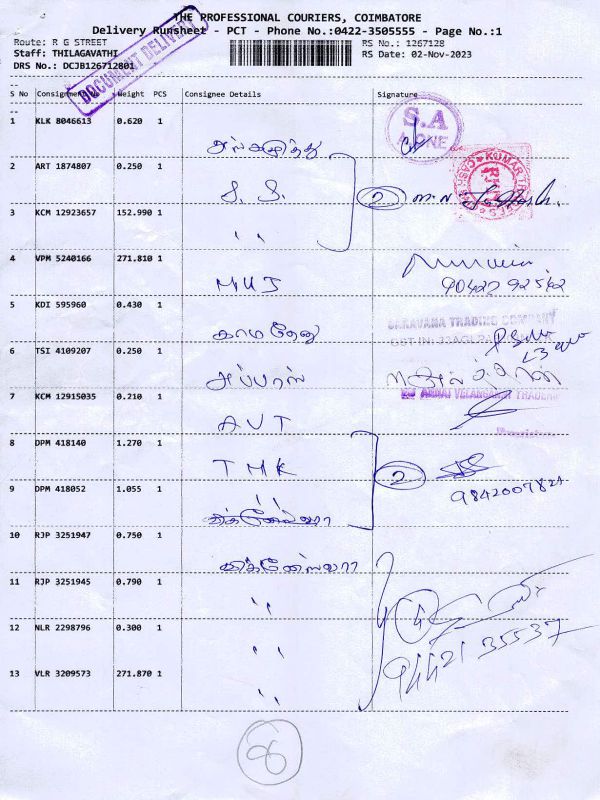 THE PROFESSIONAL COURIERS, COIMBATORE
Delivery Runsheet - PCT - Phone No.:0422-3505555 - Page No.:1
Route: R G STREET
RS No.: 1267128
Staff: THILAGAVATHI
RS Date: 02-Nov-2023
DRS No.: DCJB126712801
DOCUMENT DELIVERY
S No Consignment Weight PCS Consignee Details Signature
1 KLK 8046613 0.620 1
S.A
A ONE
2 ART 1874807 0.250 1 S. S.
2
3 KCM 12923657 152.990 1 "
4 VPM 5240166 271.810 1 MUJ
90422 92562
5 KDI 595960 0.430 1 காமதேனு
SARAVANA TRADING COMPANY
6 TSI 4109207 0.250 1 அப்பாஸ்
7 KCM 12915035 0.210 1 AVT
8 DPM 418140 1.270 1 TMK
2
9 DPM 418052 1.055 1 "
9842007821
10 RJP 3251947 0.750 1 விக்னேஸ்வரா
11 RJP 3251945 0.790 1 "
4
12 NLR 2298796 0.300 1 "
94421 35537
13 VLR 3209573 271.870 1 "